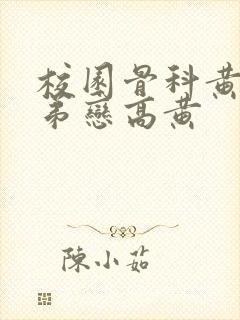 校園骨科黃
弟戀高黃
陳小茹